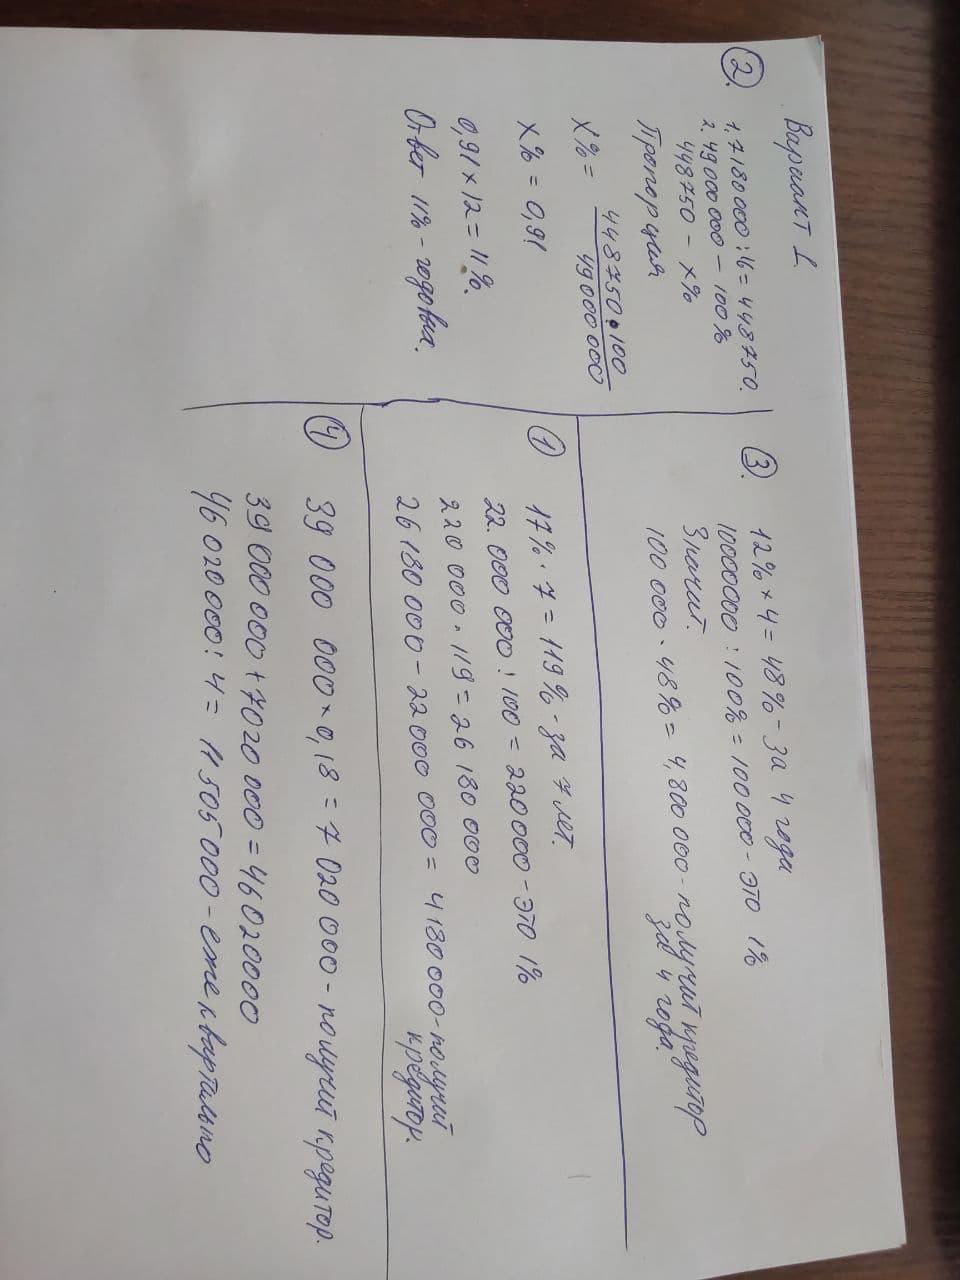 Вариант 1.
2.
1. 7180000 : 16 = 448750.
2. 49000000 - 100%
448750 - x%
Пропорция
x% = 448750 · 100 / 49000000
x% = 0,91
0,91 × 12 = 11%.
Ответ 11% - годовых.
3.
12% × 4 = 48% - за 4 года
10000000 : 100% = 100000 - это 1%
Значит.
100 000 · 48% = 4,800 000 - получит кредитор
за 4 года.
1
17% · 7 = 119% - за 7 лет.
22 000 000 : 100 = 220000 - это 1%
220 000 · 119 = 26 180 000
26 180 000 - 22 000 000 = 4 180 000 - получит
кредитор.
4
39 000 000 × 0,18 = 7 020 000 - получит кредитор.
39 000 000 + 7020 000 = 46 020000
46 020 000 : 4 = 11 505 000 - ежеквартально